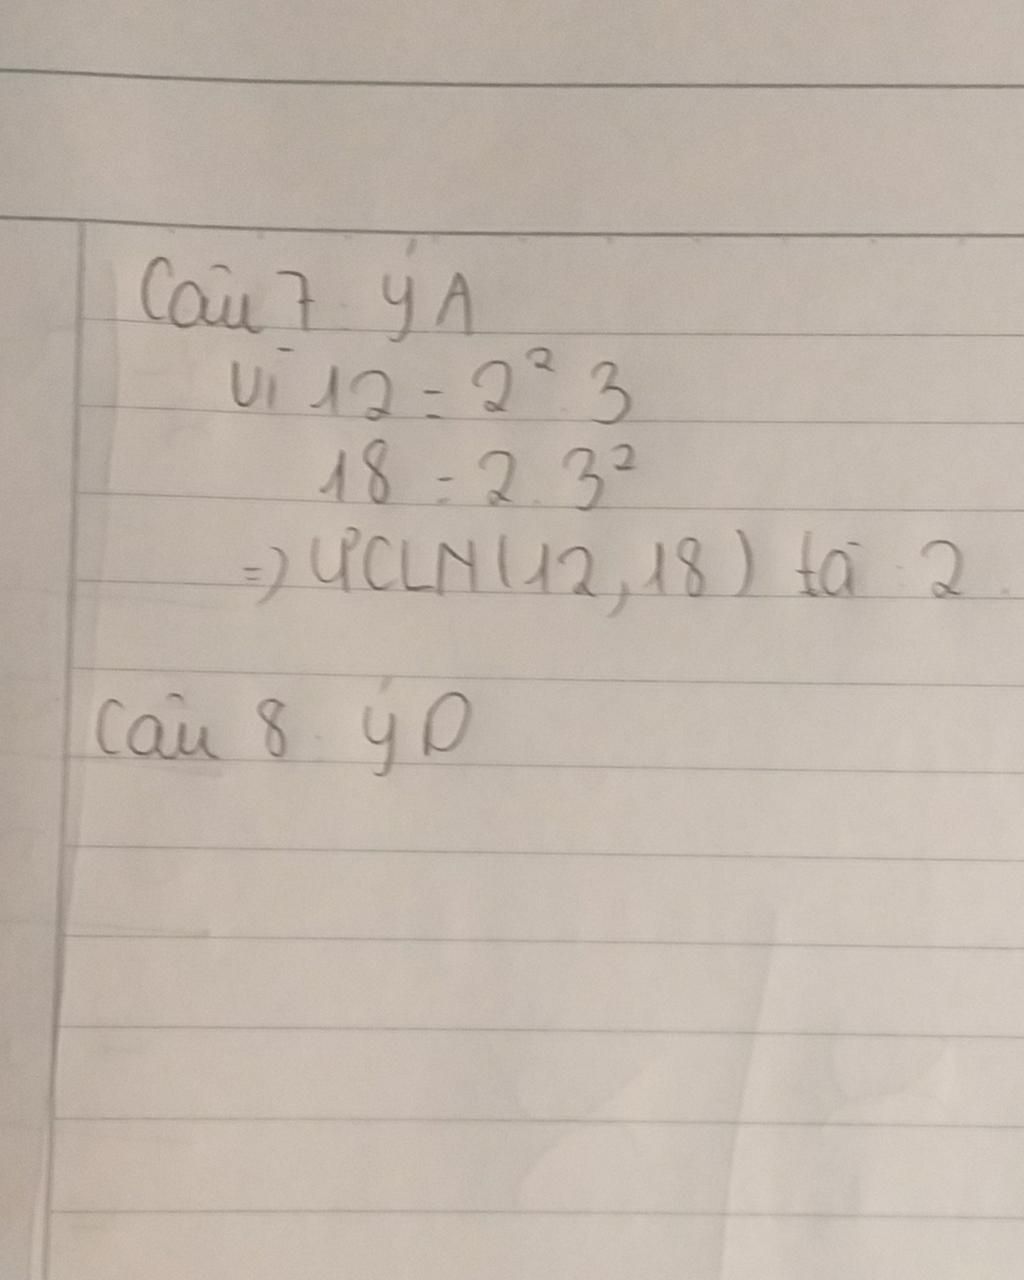 Câu 7. ý A
Vì 12 = 2² . 3
18 = 2 . 3²
=) ƯCLN (12, 18) là : 2 .
Câu 8 . ý D